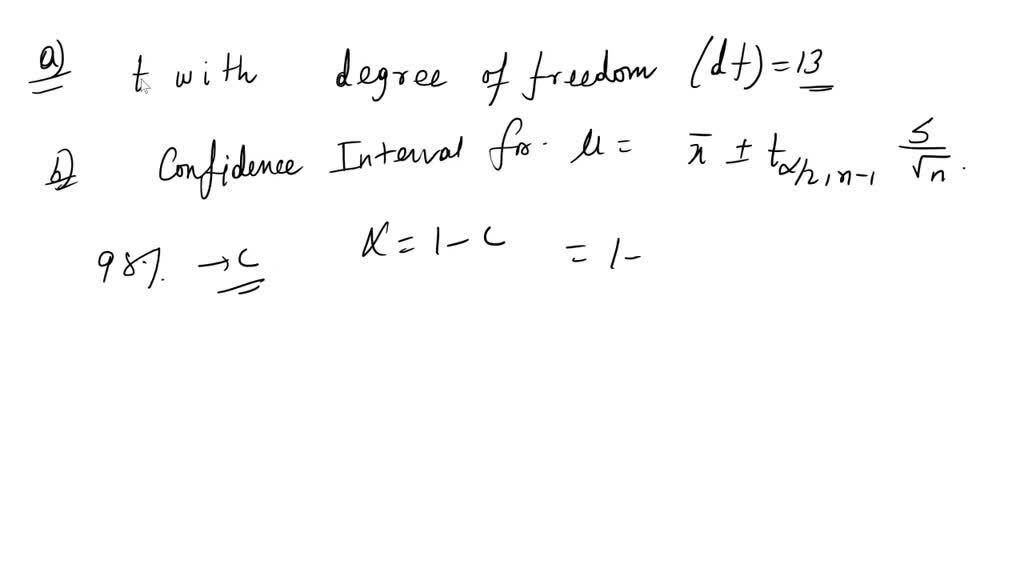 a) t with degree of freedom (df) = 13
b) Confidence Interval for. μ = x̄ ± t α/2, n-1 S/√n.
98% → c α = 1 - c = 1 -